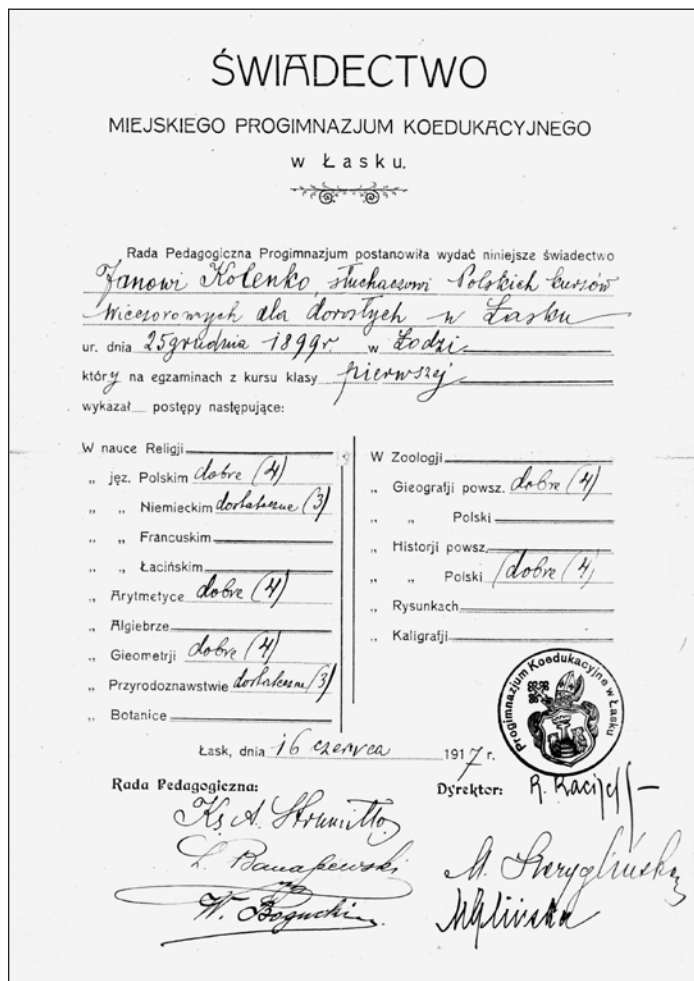 ŚWIADECTWO
MIEJSKIEGO PROGIMNAZJUM KOEDUKACYJNEGO
w Łasku.
Rada Pedagogiczna Progimnazjum postanowiła wydać niniejsze świadectwo
Janowi Kolenko, słuchaczowi Polskich kursów
Wieczorowych dla dorosłych w Łasku
ur. dnia 25 grudnia 1899 r. w Łodzi
który na egzaminach z kursu klasy pierwszej
wykazał postępy następujące:
W nauce Religji
„ jęz. Polskim dobre (4)
„ „ Niemieckim dostateczne (3)
„ „ Francuskim
„ „ Łacińskim
„ Arytmetyce dobre (4)
„ Algiebrze
„ Gieometrji dobre (4)
„ Przyrodoznawstwie dostateczne (3)
„ Botanice
W Zoologji
„ Gieografji powsz. dobre (4)
„ „ Polski
„ Historji powsz.
„ „ Polski dobre (4)
„ Rysunkach
„ Kaligrafji
Progimnazjum Koedukacyjne w Łasku
Łask, dnia 16 czerwca 1917 r.
Rada Pedagogiczna:
Dyrektor: R.
Ks. A.
L.
M.
W. Bogucki
MGlińska